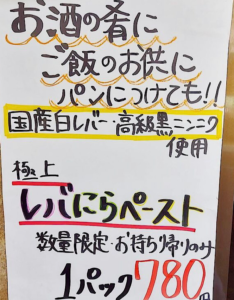 お酒の肴に
ご飯のお供に
パンにつけても!!
国産白レバー・高級黒ニンニク
使用
極上
レバにらペースト
数量限定・お持ち帰りのみ
1パック780円